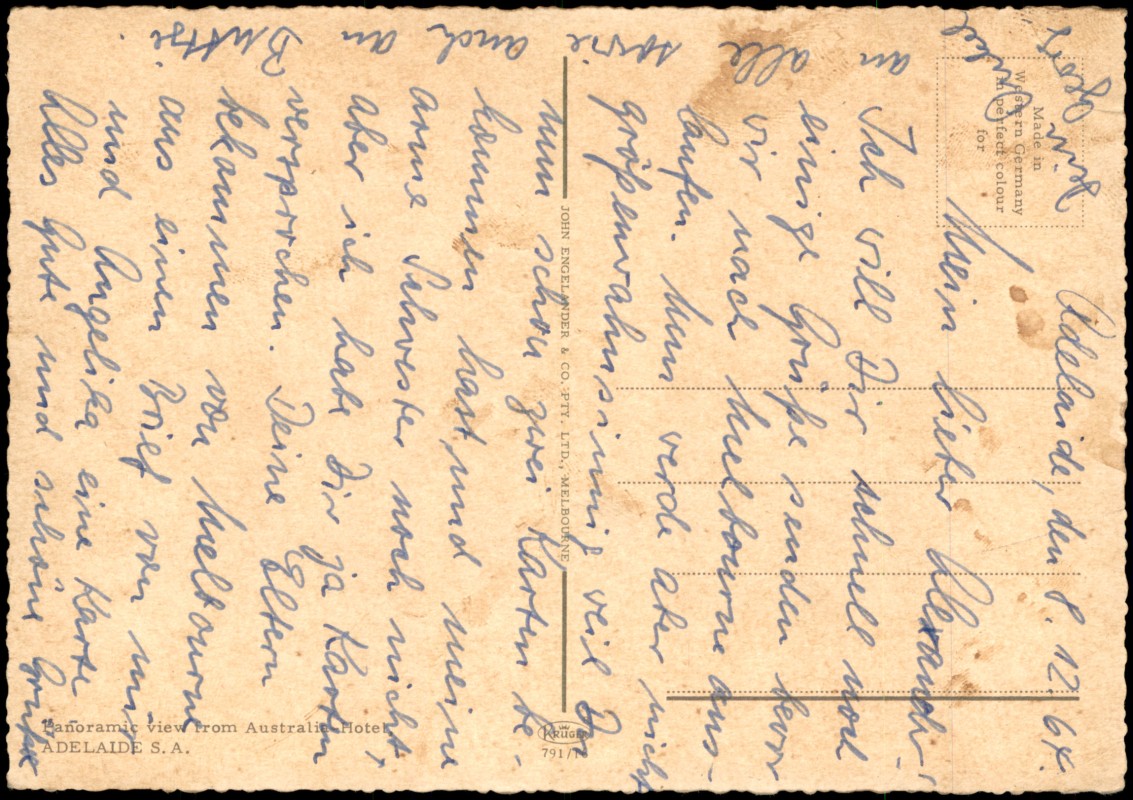 Adelaide, den 8. 12. 64.
Mein lieber Alexander!
Ich will Dir schnell noch
einige Grüße senden bevor
wir nach Melbourne aus-
laufen. Nun werde aber nicht
größenwahnsinnig weil Du
nun schon zwei Karten be-
kommen hast, und meine
arme Schwester noch nicht,
aber ich habe Dir ja Karten
versprochen. Deine Eltern
bekommen von Melbourne
aus einen Brief von mir
und Angelika eine Karte.
Alles Gute und schöne Grüße
an alle sowie auch an
Butzi.
Dein Onkel
Made in
Western Germany
in perfect colour
for
JOHN ENGELANDER & CO. PTY. LTD., MELBOURNE
Panoramic view from Australia Hotel,
ADELAIDE S. A.
KRÜGER